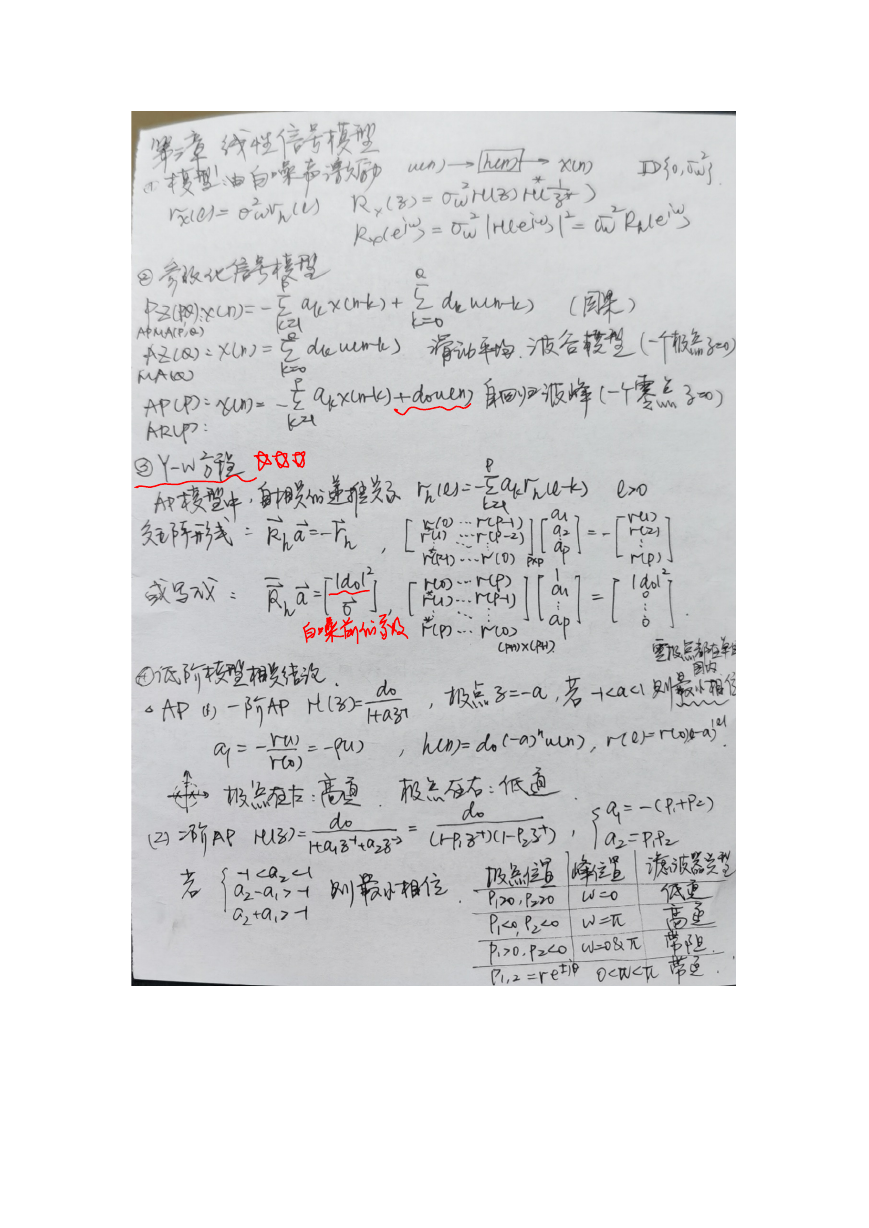 第三章 线性信号模型
① 模型:由白噪声谱激励 w(n) → h(n) → x(n) IID{0,σw²}.
rx(l)=σw²rh(l) Rx(z)=σw²H(z)H*(1/z*)
Rx(e^jω)=σw²|H(e^jω)|²=σw²Rh(e^jω)
② 参数化信号模型
PZ(P,Q):x(n)=-∑_{k=1}^{P} ak x(n-k)+∑_{k=0}^{Q} dk w(n-k) (因果)
ARMA(P,Q)
AZ(Q):x(n)=∑_{k=0}^{Q} dk w(n-k) 滑动平均.波谷模型(一个极点z=0)
MA(Q)
AP(P):x(n)=-∑_{k=1}^{P} ak x(n-k)+d0w(n) 自回归 波峰(一个零点z=0)
AR(P):
③ Y-W方程 ☆☆☆
AP模型中,自相关的递推关系 rh(l)=-∑_{k=1}^{P} ak rh(l-k) l>0
矩阵形式: Rh a=-rh , [r(0)…r(P-1) r(1)…r(P-2) ⋮ r*(P-1)…r(0)]P×P [a1 a2 aP]=-[r(1) r(2) ⋮ r(P)]
或写成: Rh a=[|d0|² 0], [r(0)…r(P) r*(1)…r(P-1) ⋮ r*(P)…r(0)](P+1)×(P+1) [1 a1 ⋮ aP]=[|d0|² 0 ⋮ 0].
白噪前的系数
零极点都在单位圆内
④低阶模型相关结论.
△ AP (1) 一阶AP H(z)=d0/(1+az^-1) , 极点z=-a,若-1<a<1则最小相位
a1=-r(1)/r(0)=-ρ(1) , h(n)=d0(-a)^n u(n), r(l)=r(0)(-a)^|l|.
极点在左:高通. 极点在右:低通.
(2) 二阶AP H(z)=d0/(1+a1z^-1+a2z^-2)=d0/((1-p1z^-1)(1-p2z^-1)) , {a1=-(p1+p2) a2=p1p2
若 {-1<a2<1 a2-a1>-1 a2+a1>-1 则最小相位.
极点位置 峰位置 滤波器类型
p1>0,p2>0 ω=0 低通
p1<0,p2<0 ω=π 高通
p1>0,p2<0 ω=0&π 带阻.
p1,2=re^±jθ 0<ω<π 带通.